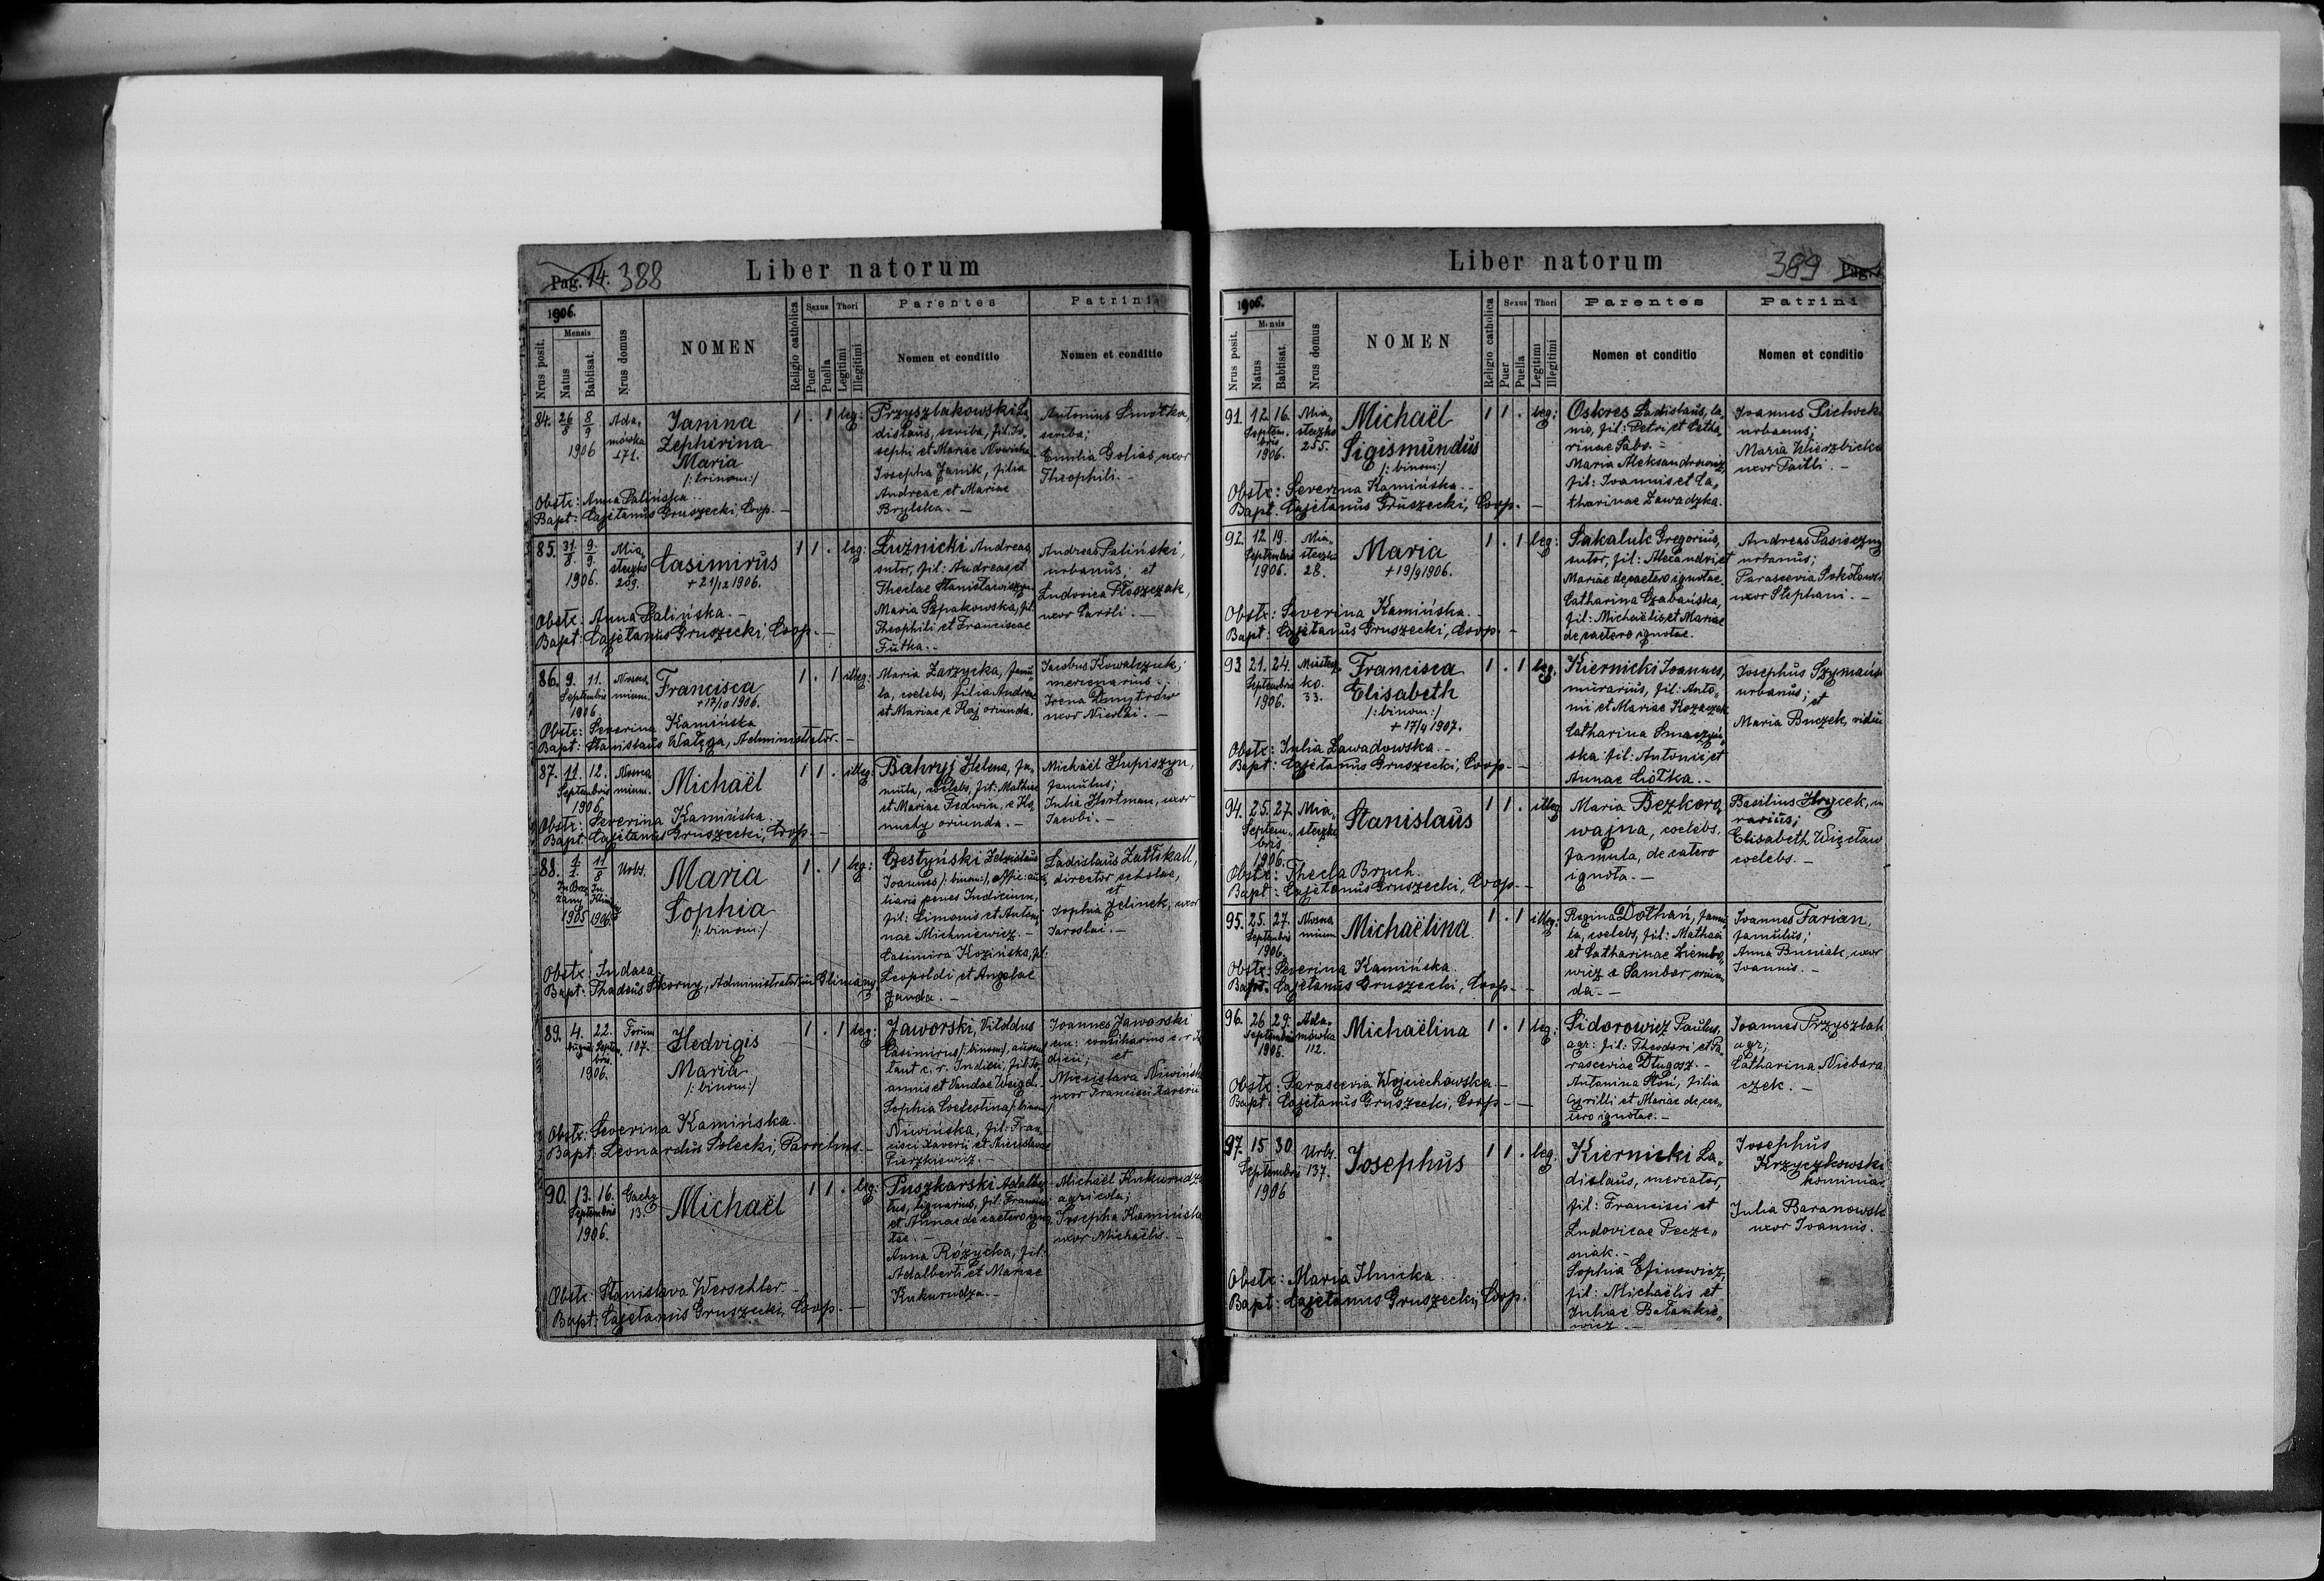 Pag. 14. 388
Liber natorum
1906.
Nrus posit.
Mensis
Natus
Babtisat.
Nrus domus
NOMEN
Religio catholica
Sexus
Puer
Puella
Thori
Legitimi
Illegitimi
Parentes
Nomen et conditio
Patrini
Nomen et conditio
84. 26/8 8/9 1906
Ada„
mówka
171.
Janina
Zepherina
Maria
/:trinom:/
1 . 1 leg:
Przyszlakowski La„
dislaus, scriba, fil: Jo„
sephi et Mariae Nowicka
Josepha Janik, filia
Andreae et Mariae
Brylska. –
Antonius Smółka,
scriba;
Emilia Golias, uxor
Theophili. –
Obstr: Anna Palińska. –
Bapt: Cajetanus Gruszecki, Coop. –
85. 31/8. 9/9. 1906.
Mia„
steczko
259.
Casimirus
+ 21/12 1906.
1 1 . leg:
Łuźnicki Andreas,
sutor, fil: Andreae et
Theclae Stanisławiszyn
Maria Szpakowska, fil:
Theophili et Franciscae
Futka. –
Andreas Paliński,
urbanus; et
Ludovica Płoszczak,
uxor Caroli. –
Obstr: Anna Palińska. –
Bapt: Cajetanus Gruszecki, Coop. –
86. 9. 11.
Septembris
1906.
Nosoco„
mium.
Francisca
+ 17/10 1906.
1 . 1 illeg:
Maria Zarzycka, famu„
la, coelebs, filia Andreae
et Mariae e Raj oriunda.
Jacobus Kowalczuk,
mercenarius;
Irena Dmytrów
uxor Nicolai. –
Obstr: Severina Kamińska
Bapt: Stanislaus Wałęga, Administrator. –
87. 11. 12.
Septembris
1906.
mium.
Michaël
1 1 . illeg:
Bahryj Helena, fa„
mula, coelebs, fil: Mathiae
et Mariae Fedwin, e
nuchy oriunda. –
Michaël Hupiszyn,
famulus;
Julia Hortman, uxor
Jacobi. –
Obstr: Severina Kamińska.
Bapt: Cajetanus Gruszecki, Coop. –
88. 1/1. 11/8
In Brze„
żany
1905
In
1906.
Urbs.
Maria
Sophia
/:binom:/
1 . 1 leg:
Czestyński Zdzislaus
Joannes /:binom:/, offic: auxi„
liaris penes Judicium,
fil: Simonis et Anto„
nae Michniewicz. –
Casimira Kozińska, fil:
Leopoldi et Angelae
Janda. –
Ladislaus Zattokall,
director scholae,
et
Sophia Jelinek, uxor
Jaroslai. –
Obstr: Judaea
Bapt: Thadeus Sikorny, Administrator in Gliniany
89. 4. 22.
Augusti Septem„
bris.
1906.
Forum
107.
Hedvigis
Maria
/:binom:/
1 . 1 leg:
Jaworski, Vitoldus
Casimirus /:binom:/, auscul„
tant c. r. Judicii, fil: Jo„
annis et Vandae Weigel. –
Sophia Coelestina /:binom:/
Niwińska, fil: Fran„
cisci Xaverii et Miecislavae
Pierzkiewicz. –
Joannes Jaworski
em: consiliarius c. r. Ju
dicii; et
Miecislava Niwińska
uxor Francisci Xaverii
Obstr: Severina Kamińska.
Bapt: Leonardus Solecki, Parochus. –
90. 13. 16.
Septembris
1906.
Gachy
13.
Michaël
1 1 . leg:
Puszkarski Adalber
tus, lignarius, fil: Francisci
et Annae de caetero igno„
tae. –
Anna Różycka, fil:
Adalberti et Mariae
Kukurudza. –
Michaël Kukurudza
agricola;
Josepha Kamińska
uxor Michaëlis. –
Obstr: Stanislava Werschler. –
Bapt: Cajetanus Gruszecki, Coop. –
Liber natorum
389 Pag.
1906.
Nrus posit.
Mensis
Natus
Babtisat.
Nrus domus
NOMEN
Religio catholica
Sexus
Puer
Puella
Thori
Legitimi
Illegitimi
Parentes
Nomen et conditio
Patrini
Nomen et conditio
91. 12. 16.
Septem„
bris
1906.
Mia„
steczko
255.
Michaël
Sigismundus
/:binom:/
1 1 . leg:
Oskres Ladislaus, la„
nio, fil: Petri et Catha„
rinae Sabs. –
Maria Aleksandrowicz,
fil: Joannis et Ca„
tharinae Zawadzka.
Joannes
urbanus;
Maria Wierzbicka
uxor Pauli. –
Obstr: Severina Kamińska. –
Bapt. Cajetanus Gruszecki, Coop. –
92. 12. 19.
Septembris
1906.
Mia„
steczko
28.
Maria
+ 19/9 1906.
1 . 1 leg:
Sakaluk Gregorius,
sutor, fil: Alexandri et
Mariae de caetero ignotae.
Catharina Czabańska,
fil: Michaëlis et Mariae
de caetero ignotae.
Andreas Pasieczny
urbanus;
Parascevia Sokołowsk
uxor Stephani. –
Obstr: Severina Kamińska. –
Bapt: Cajetanus Gruszecki, Coop. –
93. 21. 24.
Septembris
1906.
Miastecz
ko.
33.
Francisca
Elisabeth
/:binom:/
+ 17/4 1907.
1 . 1 leg.
Kiernicki Joannes,
murarius, fil: Anto„
nii et Mariae Kozaczek
Catharina Smaszyń„
ska fil: Antonii et
Annae Ciółka. –
Josephus Szymańs
urbanus; et
Maria Buczek, vidu
Obstr: Julia Zawadowska. –
Bapt: Cajetanus Gruszecki, Coop. –
94. 25. 27.
Septem„
bris
1906.
Mia„
steczko
Stanislaus
1 1 . illeg
Maria Bezkoro„
wajna, coelebs,
famula, de catero
ignota. –
Basilius Hrycek, m
rarius;
Elisabeth Więcław
coelebs. –
Obstr: Thecla Bruch.
Bapt: Cajetanus Gruszecki, Coop. –
95. 25. 27.
Septembris
1906.
mium
Michaëlina
1 . 1 illeg:
Regina Dothań, famu„
la, coelebs, fil: Mathaei
et Catharinae Ziembo„
wicz e Sambor oriun„
da. –
Joannes Farian,
famulus;
Anna Buniak, uxor
Joannis. –
Obstr: Severina Kamińska.
Bapt. Cajetanus Gruszecki, Coop. –
96. 26 29.
Septembris
1906.
Ada„
mówka
112.
Michaëlina
1 . 1 leg:
Sidorowicz Paulus,
agr: fil: Theodori et Pa„
rasceviae Długosz. –
Antonina Słoń, filia
Cyrilli et Mariae de cae„
tero ignotae. –
Joannes Przyszlak
agr;
Catharina Niebora
czek. –
Obstr: Parascevia Wojciechowska. –
Bapt: Cajetanus Gruszecki, Coop. –
97. 15 30
Septembris
1906
Urbs.
137.
Josephus
1 1 . leg.
Kiernicki La„
dislaus, mercator,
fil: Francisci et
Ludovicae Pecze„
niak. –
Sophia Efinowicz,
fil: Michaëlis et
Juliae Bałankie„
wicz. –
Josephus
Krzyczkowski
Julia Baranowsk
uxor Joannis. –
Obstr: Maria Ilnicka.
Bapt: Cajetanus Gruszecki, Coop.